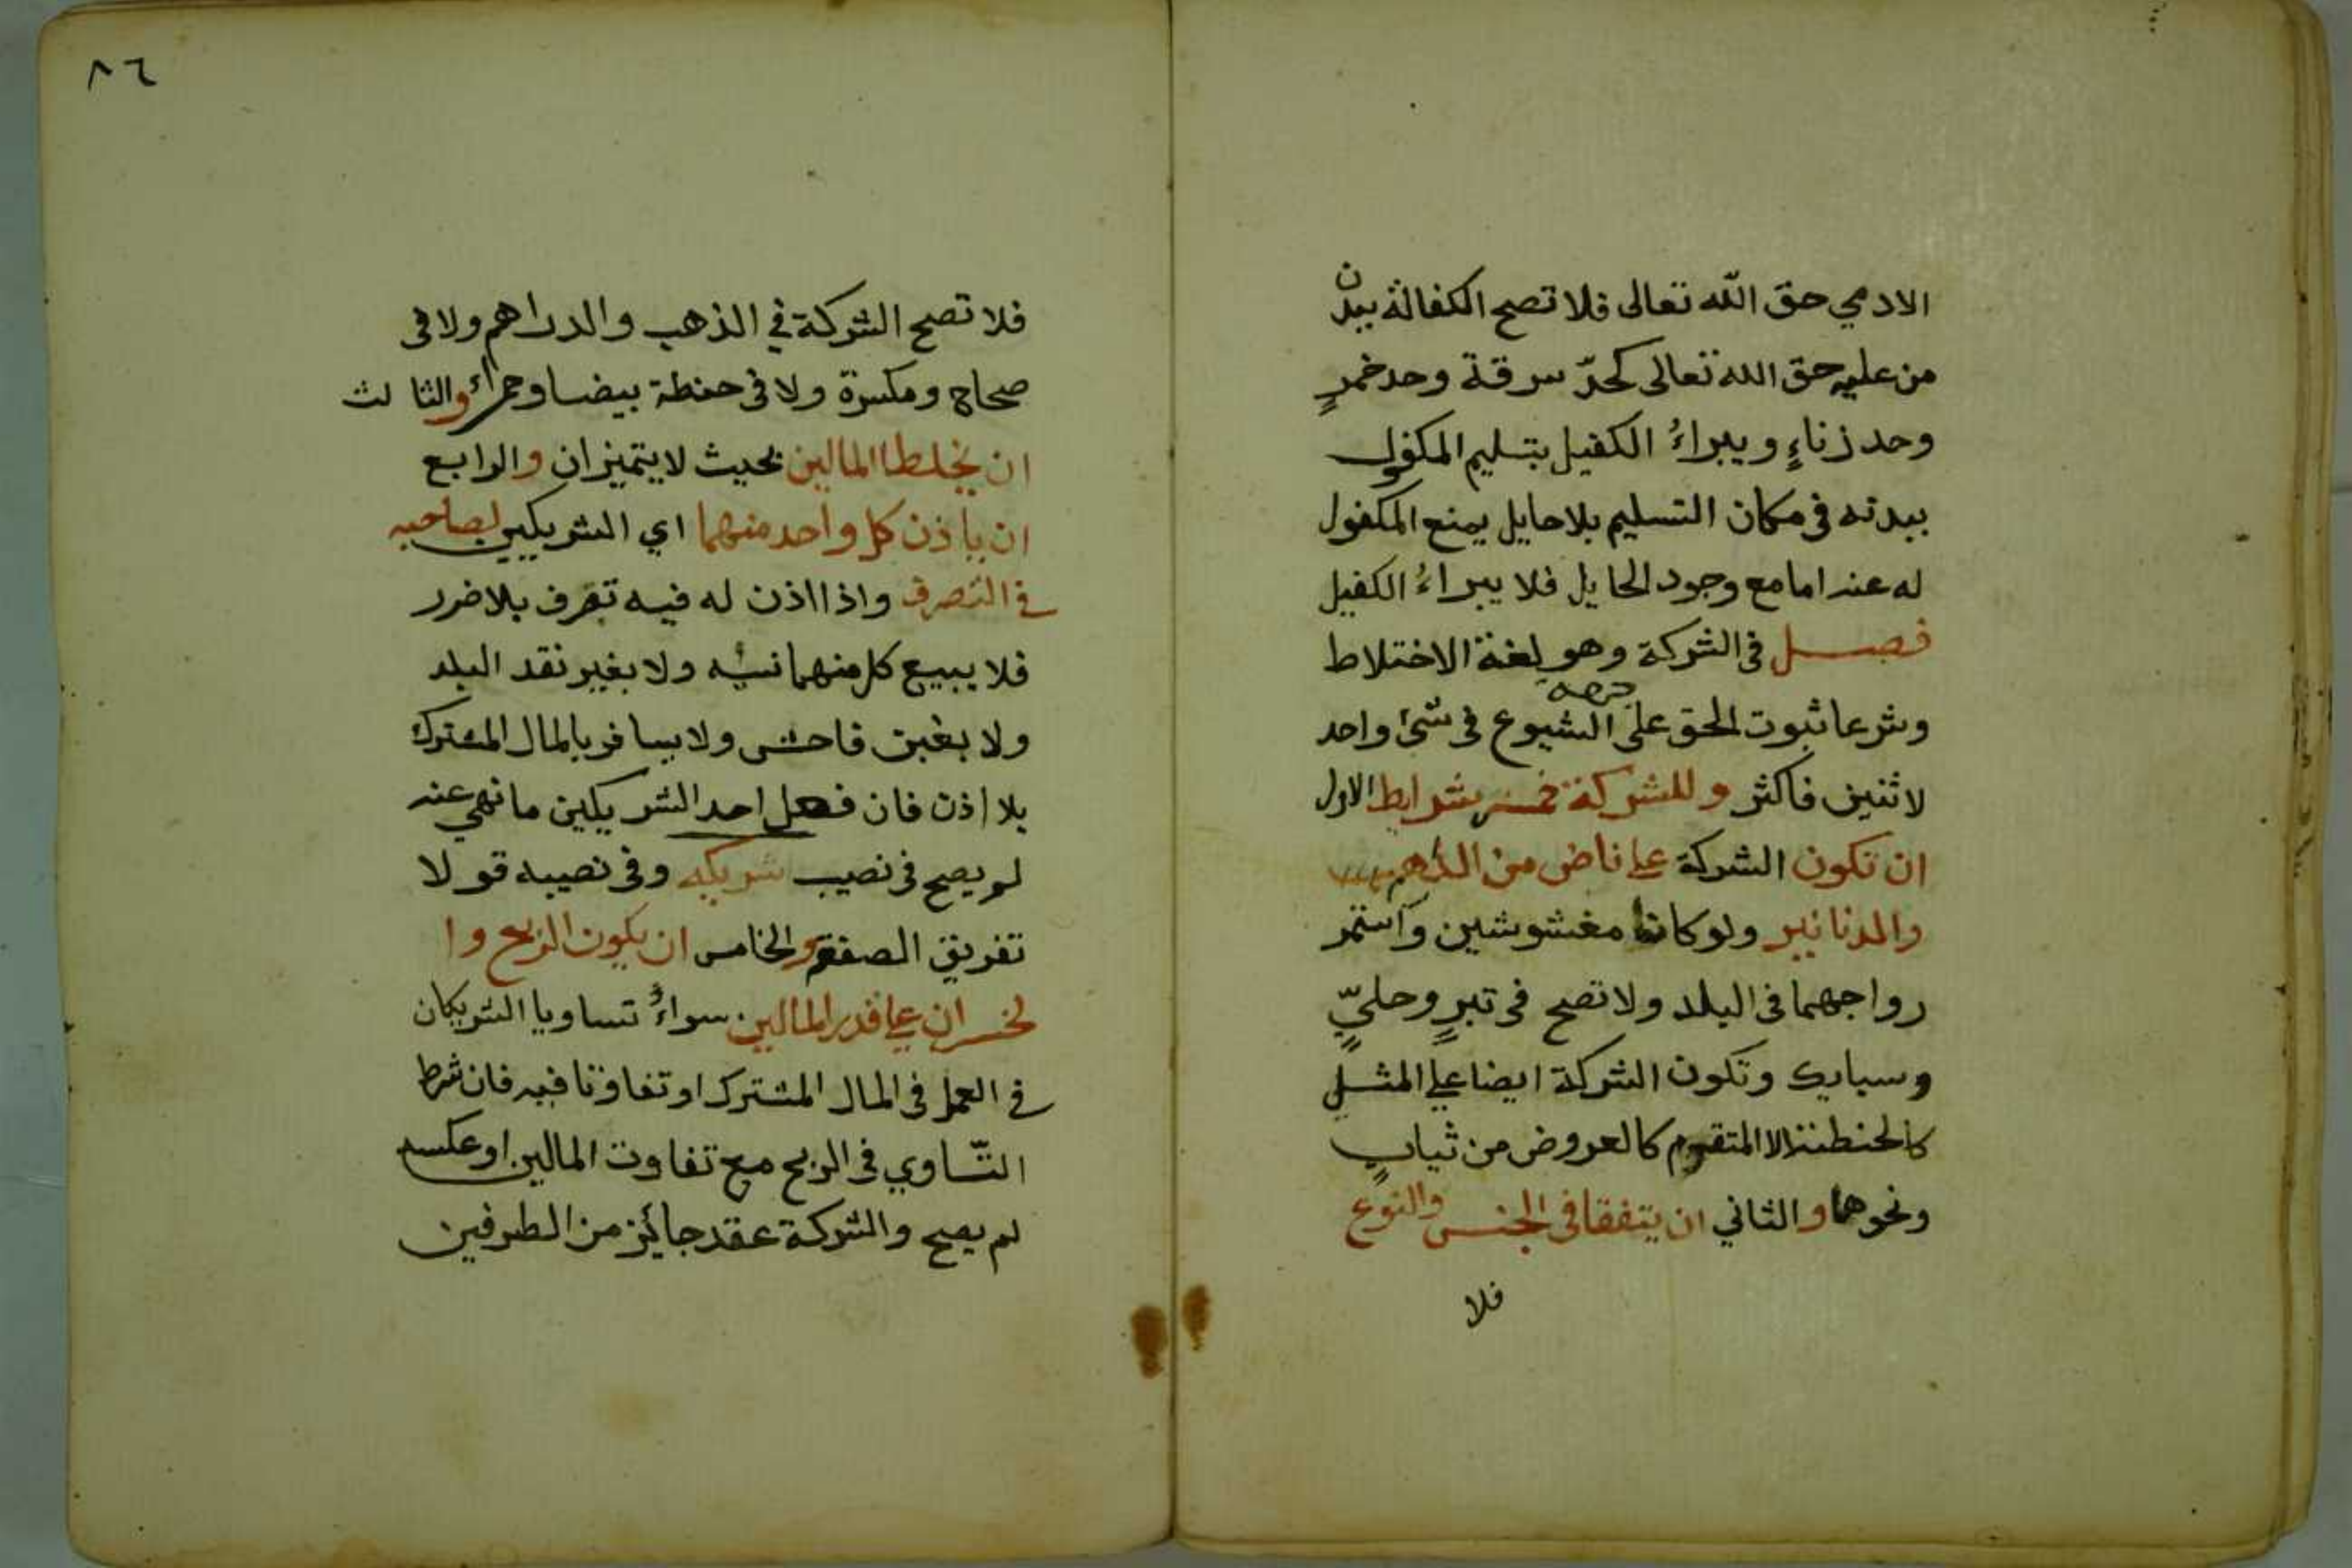 الادمي حق الله تعالى فلا تصح الكفالة ببدن
من عليه حق الله تعالى كحدّ سرقة وحد خمرٍ
وحد زناءٍ ويبراءُ الكفيل بتسليم المكفول
ببدنه في مكان التسليم بلا حايل يمنع المكفول
له عنه اما مع وجود الحايل فلا يبراءُ الكفيل
فصل في الشركة وهو لغة الاختلاط
وشرعا ثبوت الحق على جهة الشيوع في شئ واحد
لاثنين فاكثر وللشركة خمس شرايط الاول
ان تكون الشركة على ناض من الدراهم
والدنانير ولو كانا مغشوشين واستمر
رواجهما في البلد ولا تصح في تبرٍ وحليٍّ
وسبايك وتكون الشركة ايضا على المثلي
كالحنطة لا المتقوم كالعروض من ثيابٍ
ونحوها والثاني ان يتفقا في الجنس والنوع
فلا
٨٦
فلا تصح الشركة في الذهب والدراهم ولا في
صحاح ومكسرة ولا في حنطة بيضا وحمراء والثالث
ان يخلطا المالين بحيث لا يتميزان والرابع
ان ياذن كل واحد منهما اي الشريكين لصاحبه
في التصرف واذا اذن له فيه تصرف بلا ضرر
فلا يبيع كل منهما نسيه ولا بغير نقد البلد
ولا بغبن فاحش ولا يسافر بالمال المشترك
بلا اذن فان فعل احد الشريكين ما نهي عنه
لم يصح في نصيب شريكه وفي نصيبه قولا
تفريق الصفقة والخامس ان يكون الربح وا
لخسران على قدر المالين سواءُ تساويا الشريكان
في العمل في المال المشترك او تفاوتا فيه فان شرط
التّساوي في الربح مع تفاوت المالين او عكسه
لم يصح والشركة عقد جائز من الطرفين